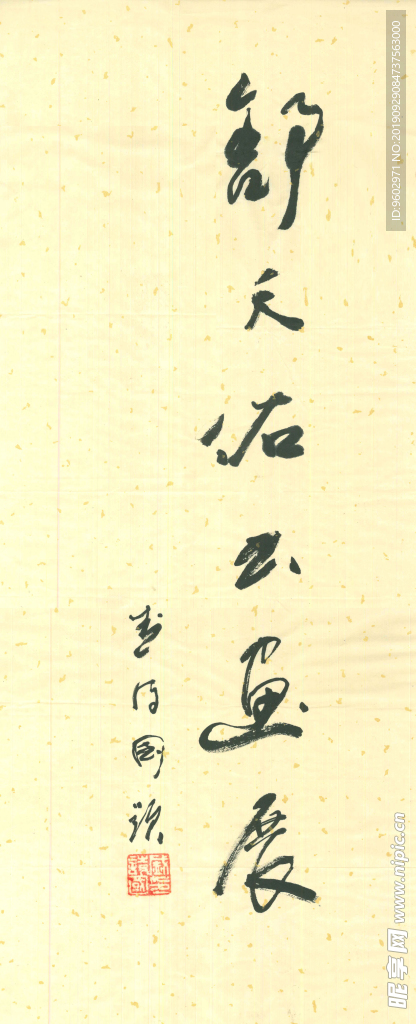 舒天佑书画展
题
ID:9602971 NO:20190929084737563000
昵享网 www.nipic.cn